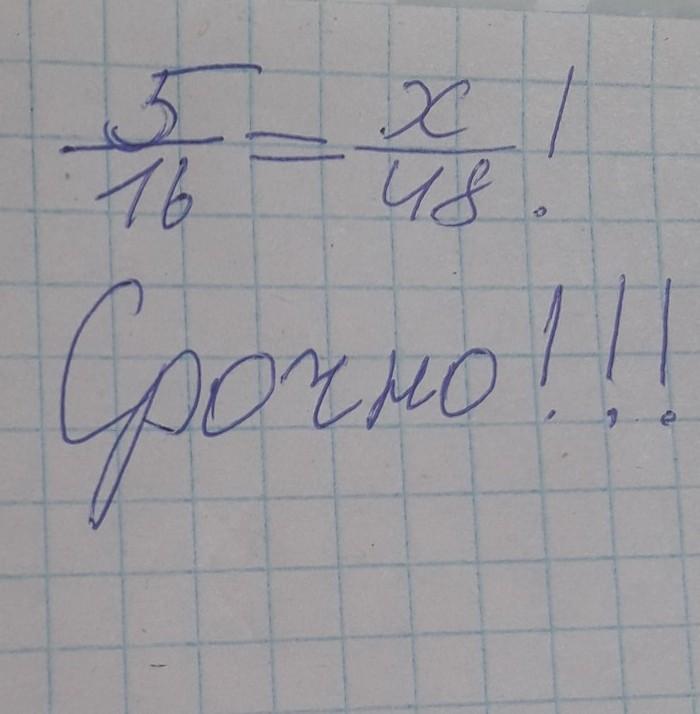 5/16 = x/48 !
Срочно!!!